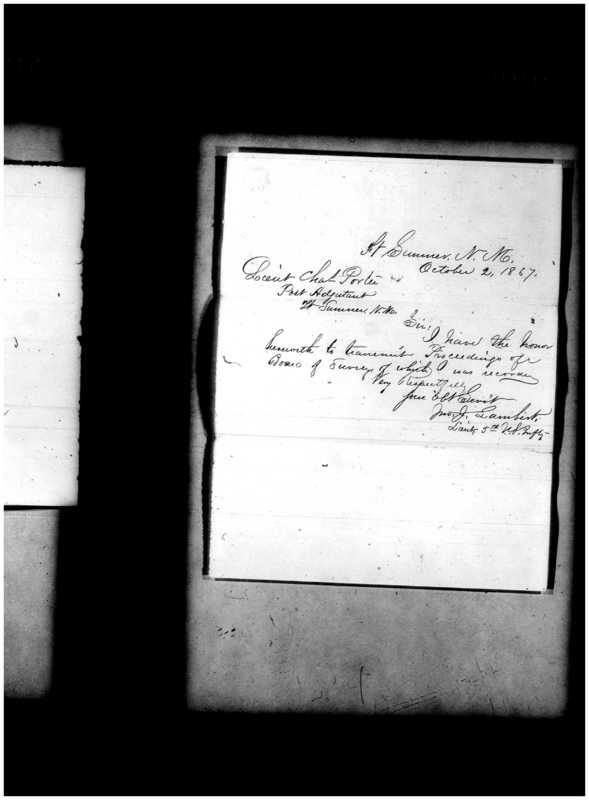 Ft Sumner, N. M.
October 2, 1867.
Lieut Chas Porter
Post Adjutant
Ft Sumner N. M.
Sir:
I have the honor
herewith to transmit Proceedings of a
Board of Survey of which I was recorder
Very Respectfully
Your Obt Servt
Jno. J. Lambert.
Lieut 5th U.S. Infty